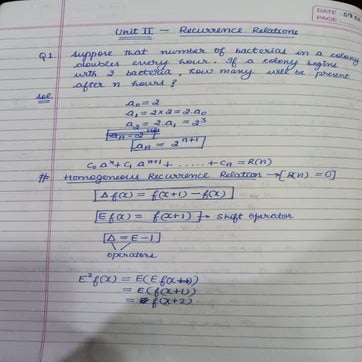 DATE
PAGE
Unit II – Recurrence Relations
Q1. Suppose that number of bacterias in a colony
doubles every hour. If a colony begins
with 2 bacteria, how many will be present
after n hours?
Sol.
a₀ = 2
a₁ = 2×2 = 2.a₀
a₂ = 2.a₁ = 2³
aₙ = 2ⁿ⁺¹
C₀ aⁿ + C₁ aⁿ⁺¹ + ...... + Cₙ = R(n)
# Homogeneous Recurrence Relation → [R(n) = 0]
Δ f(x) = f(x+1) – f(x)
E f(x) = f(x+1) → Shift operator
Δ = E – 1
operators
E² f(x) = E(E f(x))
= E(f(x+1))
= f(x+2)